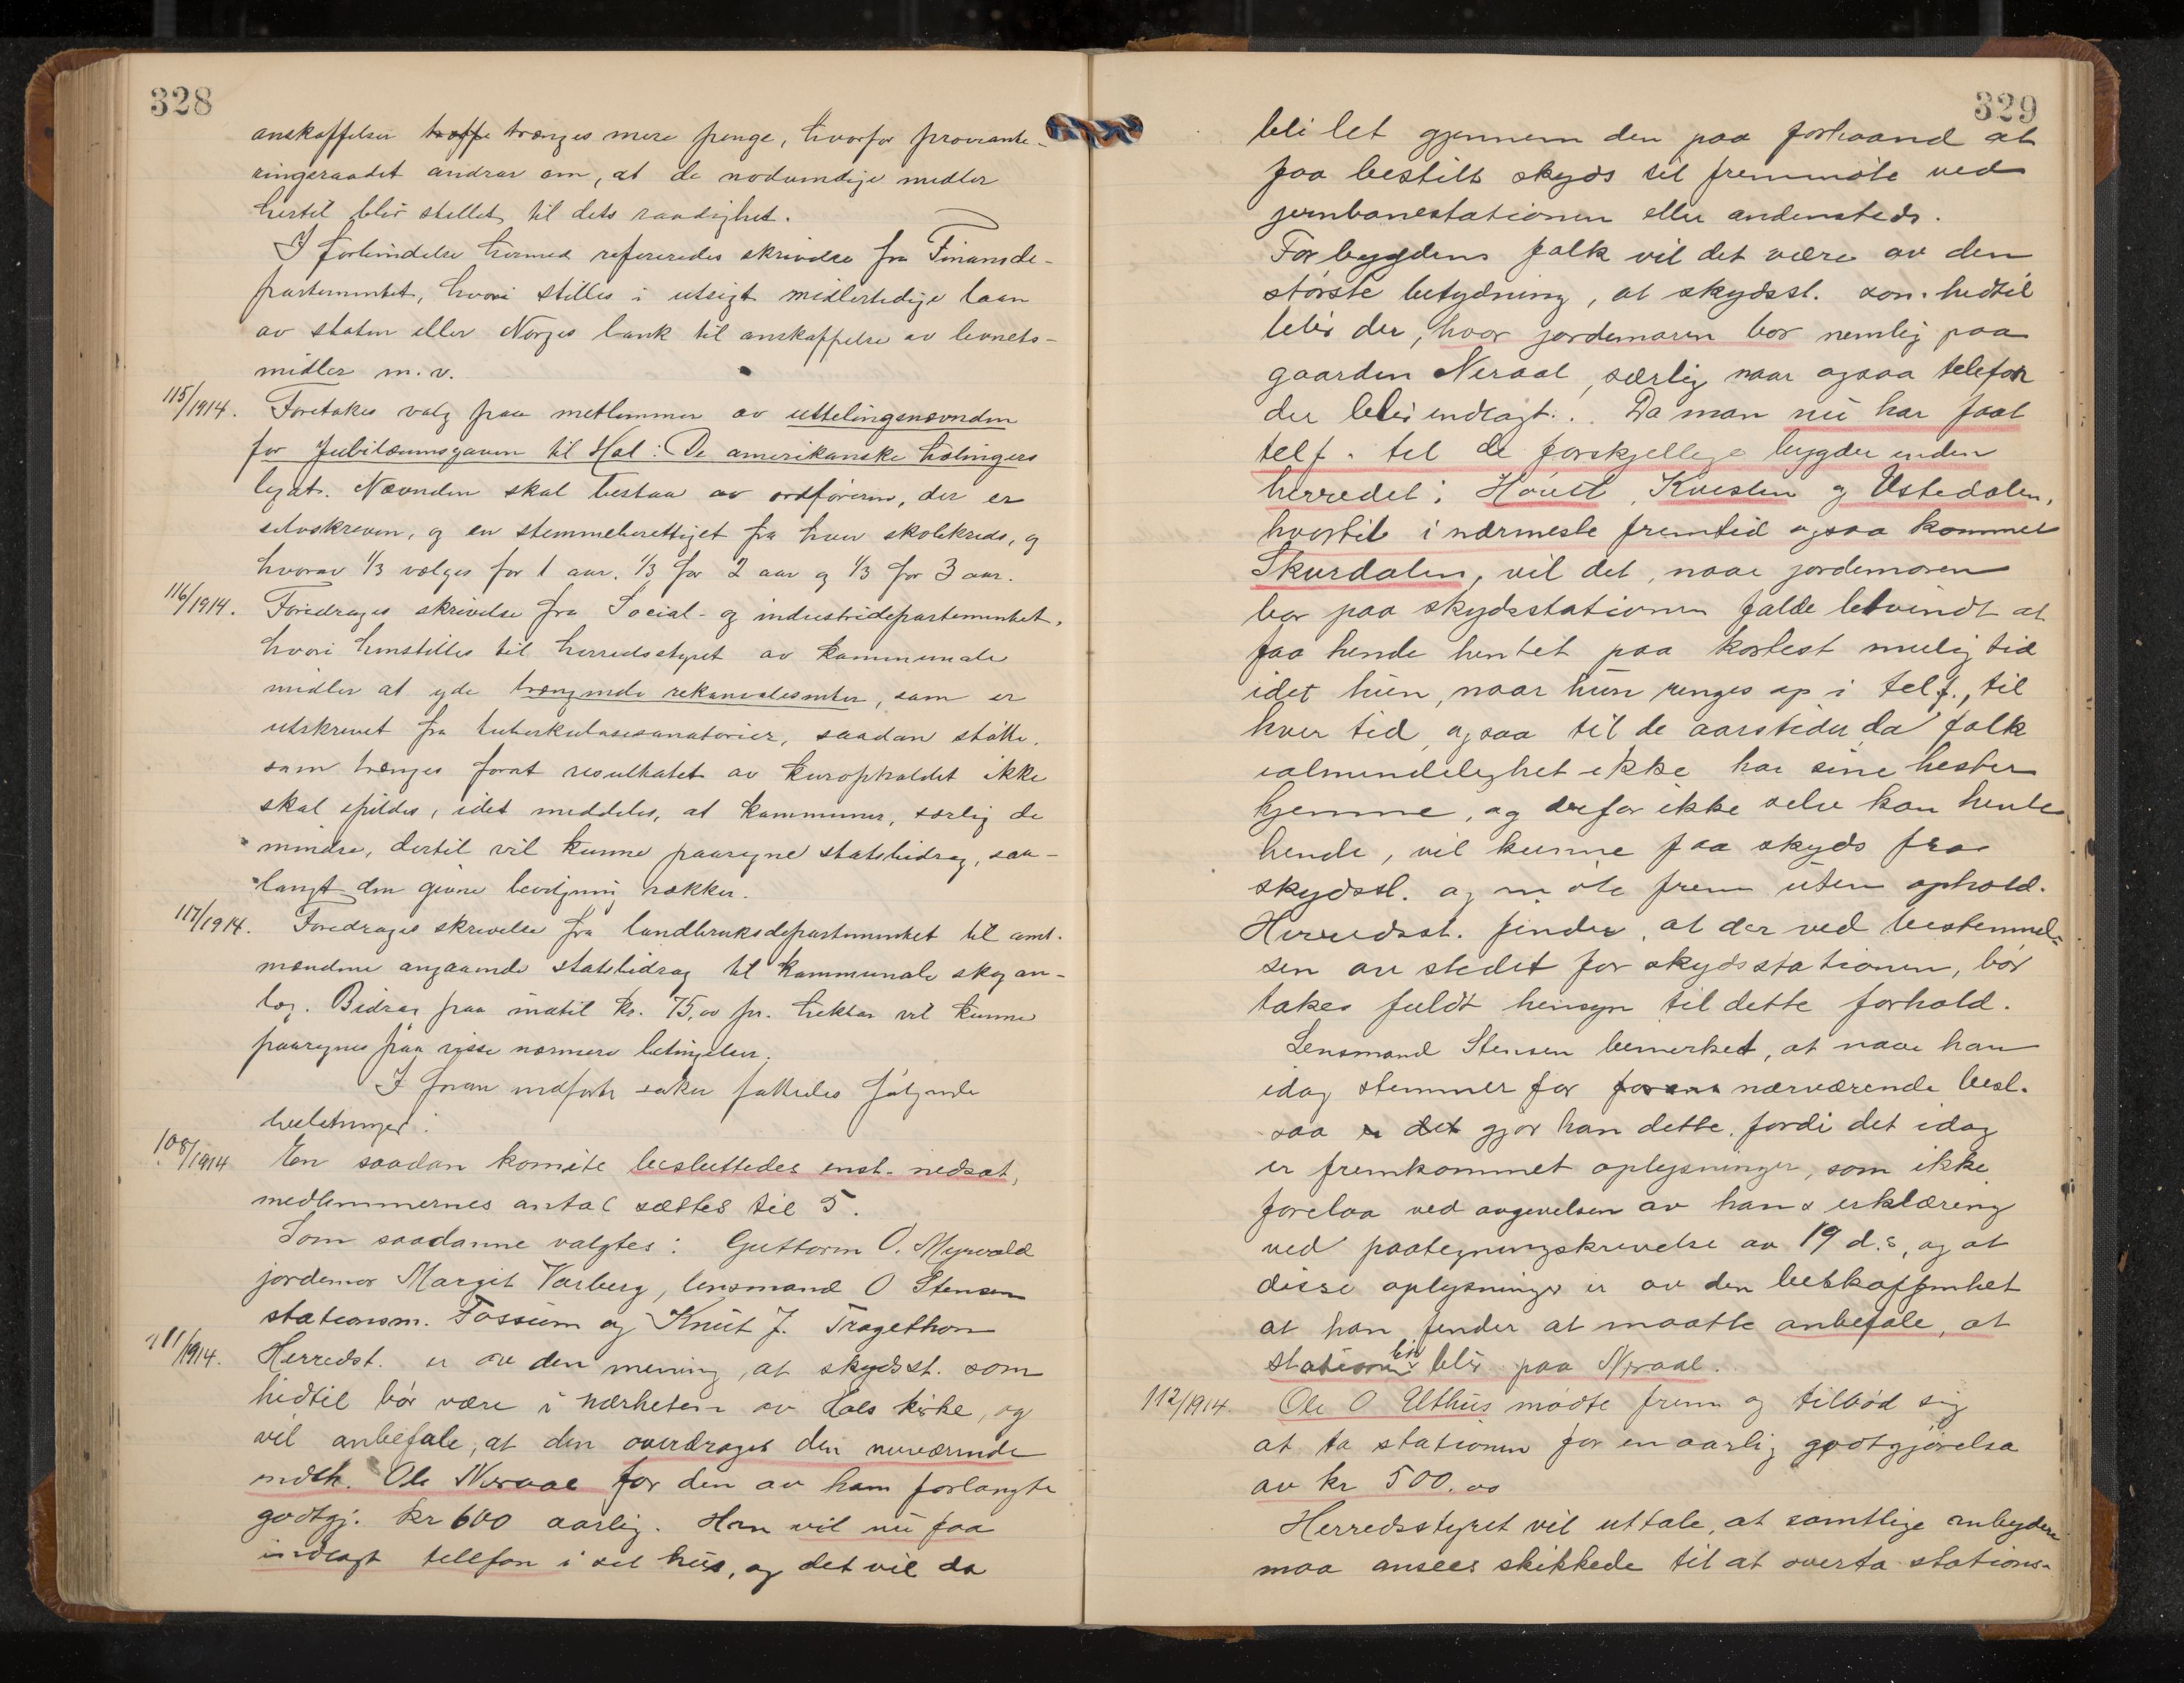 328
anskaffelser traffe trænges mere penge, hvorfor proviante-
ringsraadet andrar om, at de nødvendige midler
hertil blir stillet til dets raadighet.
I forbindelse hermed refereredes skrivelse fra Finansde-
partementet, hvori stilles i utsigt midlertidige laan
av staten eller Norges bank til anskaffelse av levnets-
midler m.v.
115/1914. Foretakes valg paa medlemmer av uttelingsnævnden
for Jubilæumsgaven til Hol: De amerikanske hølingers
legat. Nævnden skal bestaa av ordføreren, der er
selvskreven, og en stemmeberettiget fra hver skolekreds, og
hvorav 1/3 vælges for 1 aar. 1/3 for 2 aar og 1/3 for 3 aar.
116/1914. Foredrages skrivelse fra Social- og industridepartementet,
hvori henstilles til herredsstyret av kommunale
midler at yde trængende rekonvalesenter, som er
utskrevet fra tuberkulosesanatorier, saadan støtte,
som trænges forat resultatet av kuropholdet ikke
skal spildes, idet meddeles, at kommuner, særlig de
mindre, dertil vil kunne paaregne statsbidrag, saa-
langt den givne bevilgning rækker.
117/1914. Foredrages skrivelse fra landbruksdepartementet til amt-
mændene angaaende statsbidrag til kommunale skogan-
læg. Bidrag paa indtil kr. 75,00 pr. hektar vil kunne
paaregnes paa visse nærmere betingelser.
I foran indførte saker fattedes følgende
beslutninger:
108/1914 En saadan komite besluttedes enst. nedsat,
medlemmernes antal sættes til 5.
Som saadanne valgtes: Guttorm O. Myrvold
jordemor Margit Varberg, lensmand O Stensen
stationsm. Fossum og Knut J. Tragethon
111/1914. Herredst. er av den mening, at skydsst. som
hidtil bør være i nærheten av Hols kirke, og
vil anbefale, at den overdrages den nuværende
indeh. Ole Neraal for den av ham forlangte
godtgj. kr 600 aarlig. Han vil nu faa
indlagt tellefon i sit hus, og det vil da
329
bli let gjennem den paa forhaand at
faa bestilt skyds til fremmøte ved
jernbanestationen eller andensteds.
For bygdens folk vil det være av den
største betydning, at skydsst. som hidtil
blir der, hvor jordemoren bor nemlig paa
gaarden Neraal, særlig naar ogsaa telefon
der blir indlagt. Da man nu har faat
telf. til de forskjellige bygder inden
herredet: Hovet, Kvisten og Ustedalen,
hvortil i nærmeste fremtid ogsaa kommer
Skurdalen, vil det, naar jordemoren
bor paa skydsstationen falde letvindt at
faa hende hentet paa kortest mulig tid
idet hun, naar hun ringes op i telf., til
hver tid, ogsaa til de aarstider, da folk
ialmindelighet ikke har sine hester
hjemme, og derfor ikke selv kan hente
hende, vil kunne faa skyds fra
skydsst. og møte frem uten ophold.
Herredsst. finder, at der ved bestemmel-
sen av stedet for skydsstationen, bør
takes fuldt hensyn til dette forhold.
Lensmand Stensen bemerket, at naar han
idag stemmer for nærværende besl.
saa er det gjør han dette, fordi det idag
er fremkommet oplysninger, som ikke
forelaa ved avgivelsen av hans erklæring
ved paategningskrivelse av 19 d.s, og at
disse oplysninger er av den beskaffenhet
at han finder at maatte anbefale, at
stationen blir paa Neraal.
112/1914. Ole O Uthus mødte frem og tilbød sig
at ta stationen for en aarlig godtgjørelse
av kr 500.00
Herredsstyret vil uttale, at samtlige anbydere
maa ansees skikkede til at overta stations-